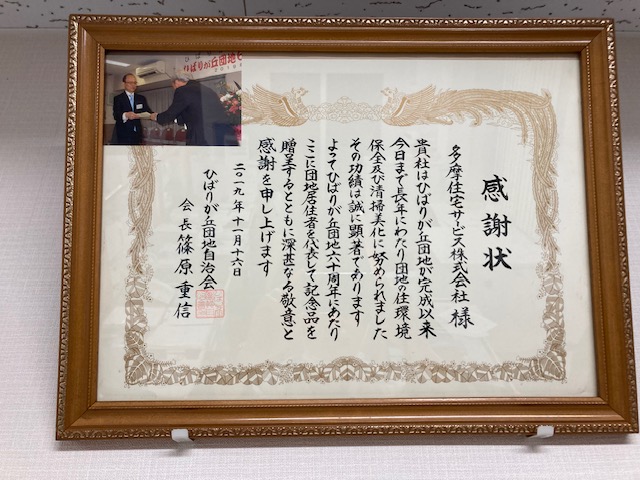 ひばりが丘団地
感謝状
多摩住宅サービス株式会社 様
貴社はひばりが丘団地が完成以来
今日まで長年にわたり団地の住環境
保全及び清掃美化に努められました
その功績は誠に顕著であります
よってひばりが丘団地六十周年にあたり
ここに団地居住者を代表して記念品を
贈呈するとともに深甚なる敬意と
感謝を申し上げます
二〇一九年十一月十六日
ひばりが丘団地自治会
会長 篠原重信